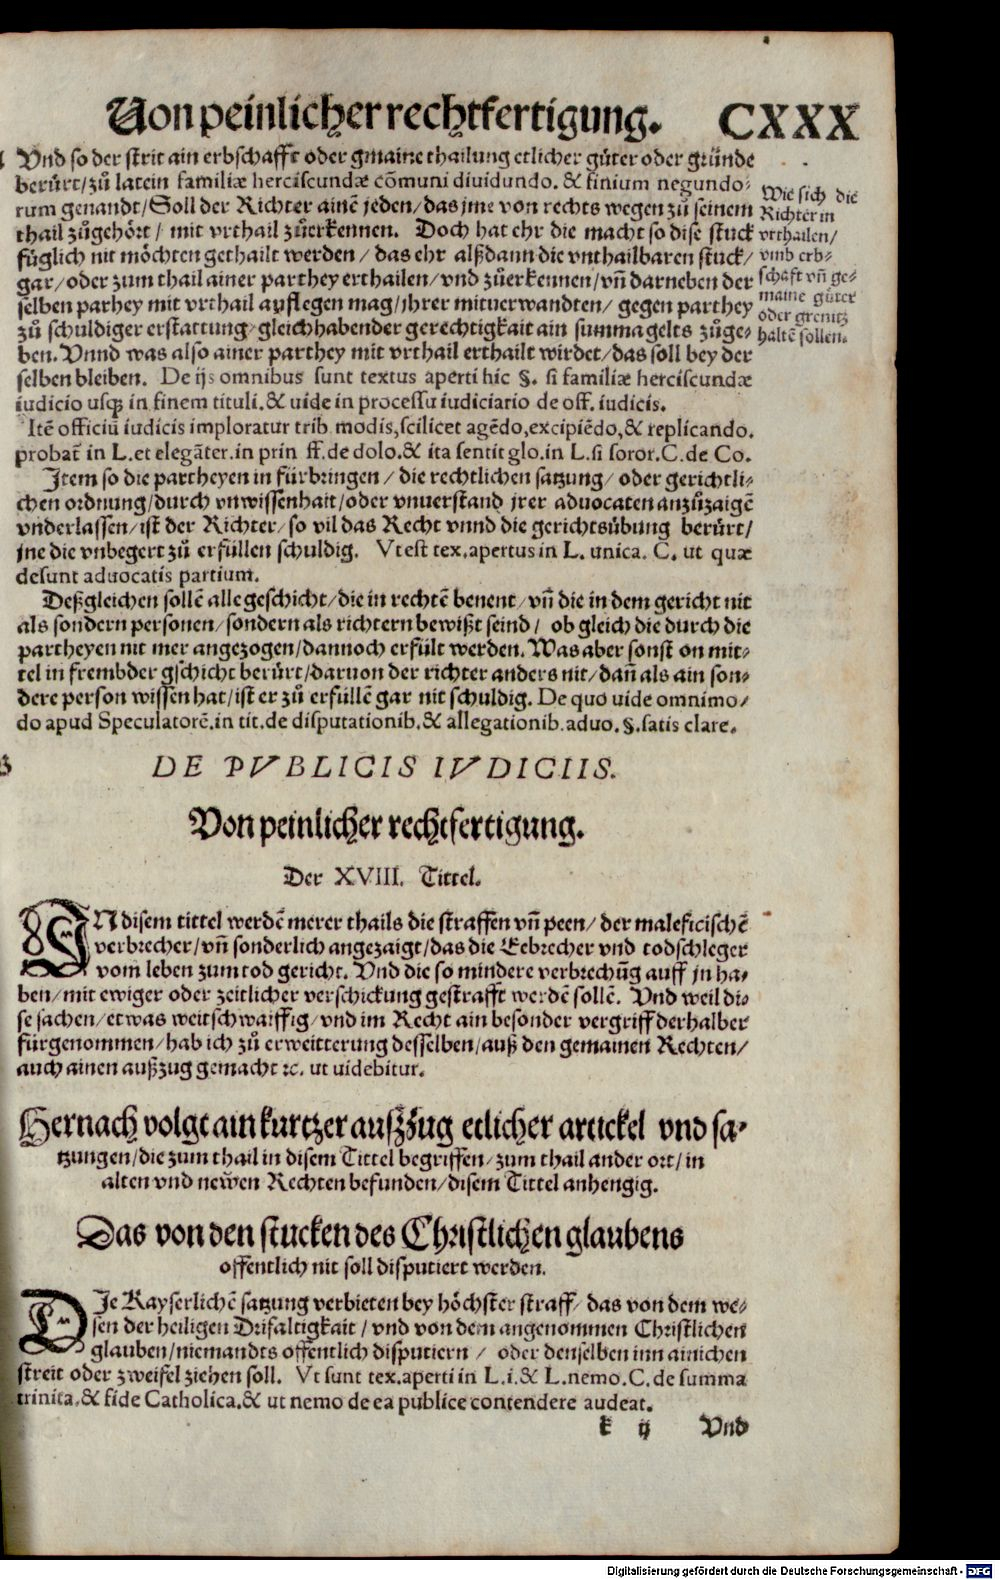 Von peinlicher rechtfertigung. CXXX
Vnd so der strit ain erbschafft oder gmaine thailung etlicher gůter oder gründe
berürt/zů latein familiæ herciscundæ cõmuni diuidundo. & finium negundo-
rum genandt/Soll der Richter ainē jeden/das jme von rechts wegen zů seinem
thail zůgehört/ mit vrthail zůerkennen. Doch hat ehr die macht so dise stuck
füglich nit möchten gethailt werden/das ehr alßdann die vnthailbaren stuck/
gar/oder zum thail ainer parthey erthailen/vnd zůerkennen/vñ darneben der
selben parhey mit vrthail auflegen mag/jhrer mituerwandten/ gegen parthey
zů schuldiger erstattung/gleich habender gerechtigkait ain summa gelts zůge-
ben. Vnnd was also ainer parthey mit vrthail erthailt wirdet/das soll bey der
selben bleiben. De ijs omnibus sunt textus aperti hic §. si familiæ herciscundæ
iudicio usq; in finem tituli.& uide in processu iudiciario de off. iudicis.
Itē officiū iudicis imploratur trib. modis,scilicet agēdo,excipiēdo,& replicando.
probat̄ in L.et elegāter.in prin ff.de dolo.& ita sentit glo.in L.si soror.C.de Co.
Jtem so die partheyen in fürbringen/die rechtlichen satzung/oder gerichtli-
chen ordnung/durch vnwissenhait/oder vnuerstand jrer aduocaten anzůzaigē
vnderlassen/ist der Richter/so vil das Recht vnnd die gerichtsübung berürt/
jne die vnbegert zů erfüllen schuldig. Vt est tex.apertus in L. unica. C. ut quæ
desunt aduocatis partium.
Deßgleichen sollē alle geschicht/die in rechtē benent/vñ die in dem gericht nit
als sondern personen/sondern als richtern bewißt seind/ ob gleich die durch die
partheyen nit mer angezogen/dannoch erfült werden. Was aber sonst on mit-
tel in frembder gschicht berürt/daruon der richter anders nit/dañ als ain son-
dere person wissen hat/ist er zů erfüllē gar nit schuldig. De quo uide omnimo-
do apud Speculatorē.in tit.de disputationib.& allegationib.aduo.§.satis clare.
Wie sich die
Richter in
vrthailen/
vmb erb-
schaft vñ ge-
maine güter
oder grenitz
haltē sollen.
DE PVBLICIS IVDICIIS.
Von peinlicher rechtfertigung.
Der XVIII. Tittel.
IN disem tittel werdē merer thails die straffen vñ peen/der maleficischē
verbrecher/vñ sonderlich angezaigt/das die Eebrecher vnd todschleger
vom leben zum tod gericht. Vnd die so mindere verbrechūg auff jn ha-
ben/mit ewiger oder zeitlicher verschickung gestrafft werdē sollē. Vnd weil di-
se sachen/etwas weitschwaiffig/vnd im Recht ain besonder vergriff derhalber
fürgenommen/hab ich zů erweitterung desselben/auß den gemainen Rechten/
auch ainen außzug gemacht ꝛc. ut uidebitur.
Hernach volgt ain kurtzer außzug etlicher artickel vnd sa-
tzungen/die zum thail in disem Tittel begriffen/zum thail ander ort/in
alten vnd newen Rechten befunden/disem Tittel anhengig.
Das von den stucken des Christlichen glaubens
offentlich nit soll disputiert werden.
DIe Kayserlichē satzung verbieten bey höchster straff/das von dem we-
sen der heiligen Drifaltigkait/vnd von dem angenommen Christlichen
glauben/niemandts offentlich disputiern/ oder denselben inn ainichen
streit oder zweifel ziehen soll. Vt sunt tex.aperti in L.i.& L.nemo.C.de summa
trinita.& fide Catholica.& ut nemo de ea publice contendere audeat.
k ij Vnd
Digitalisierung gefördert durch die Deutsche Forschungsgemeinschaft - DFG